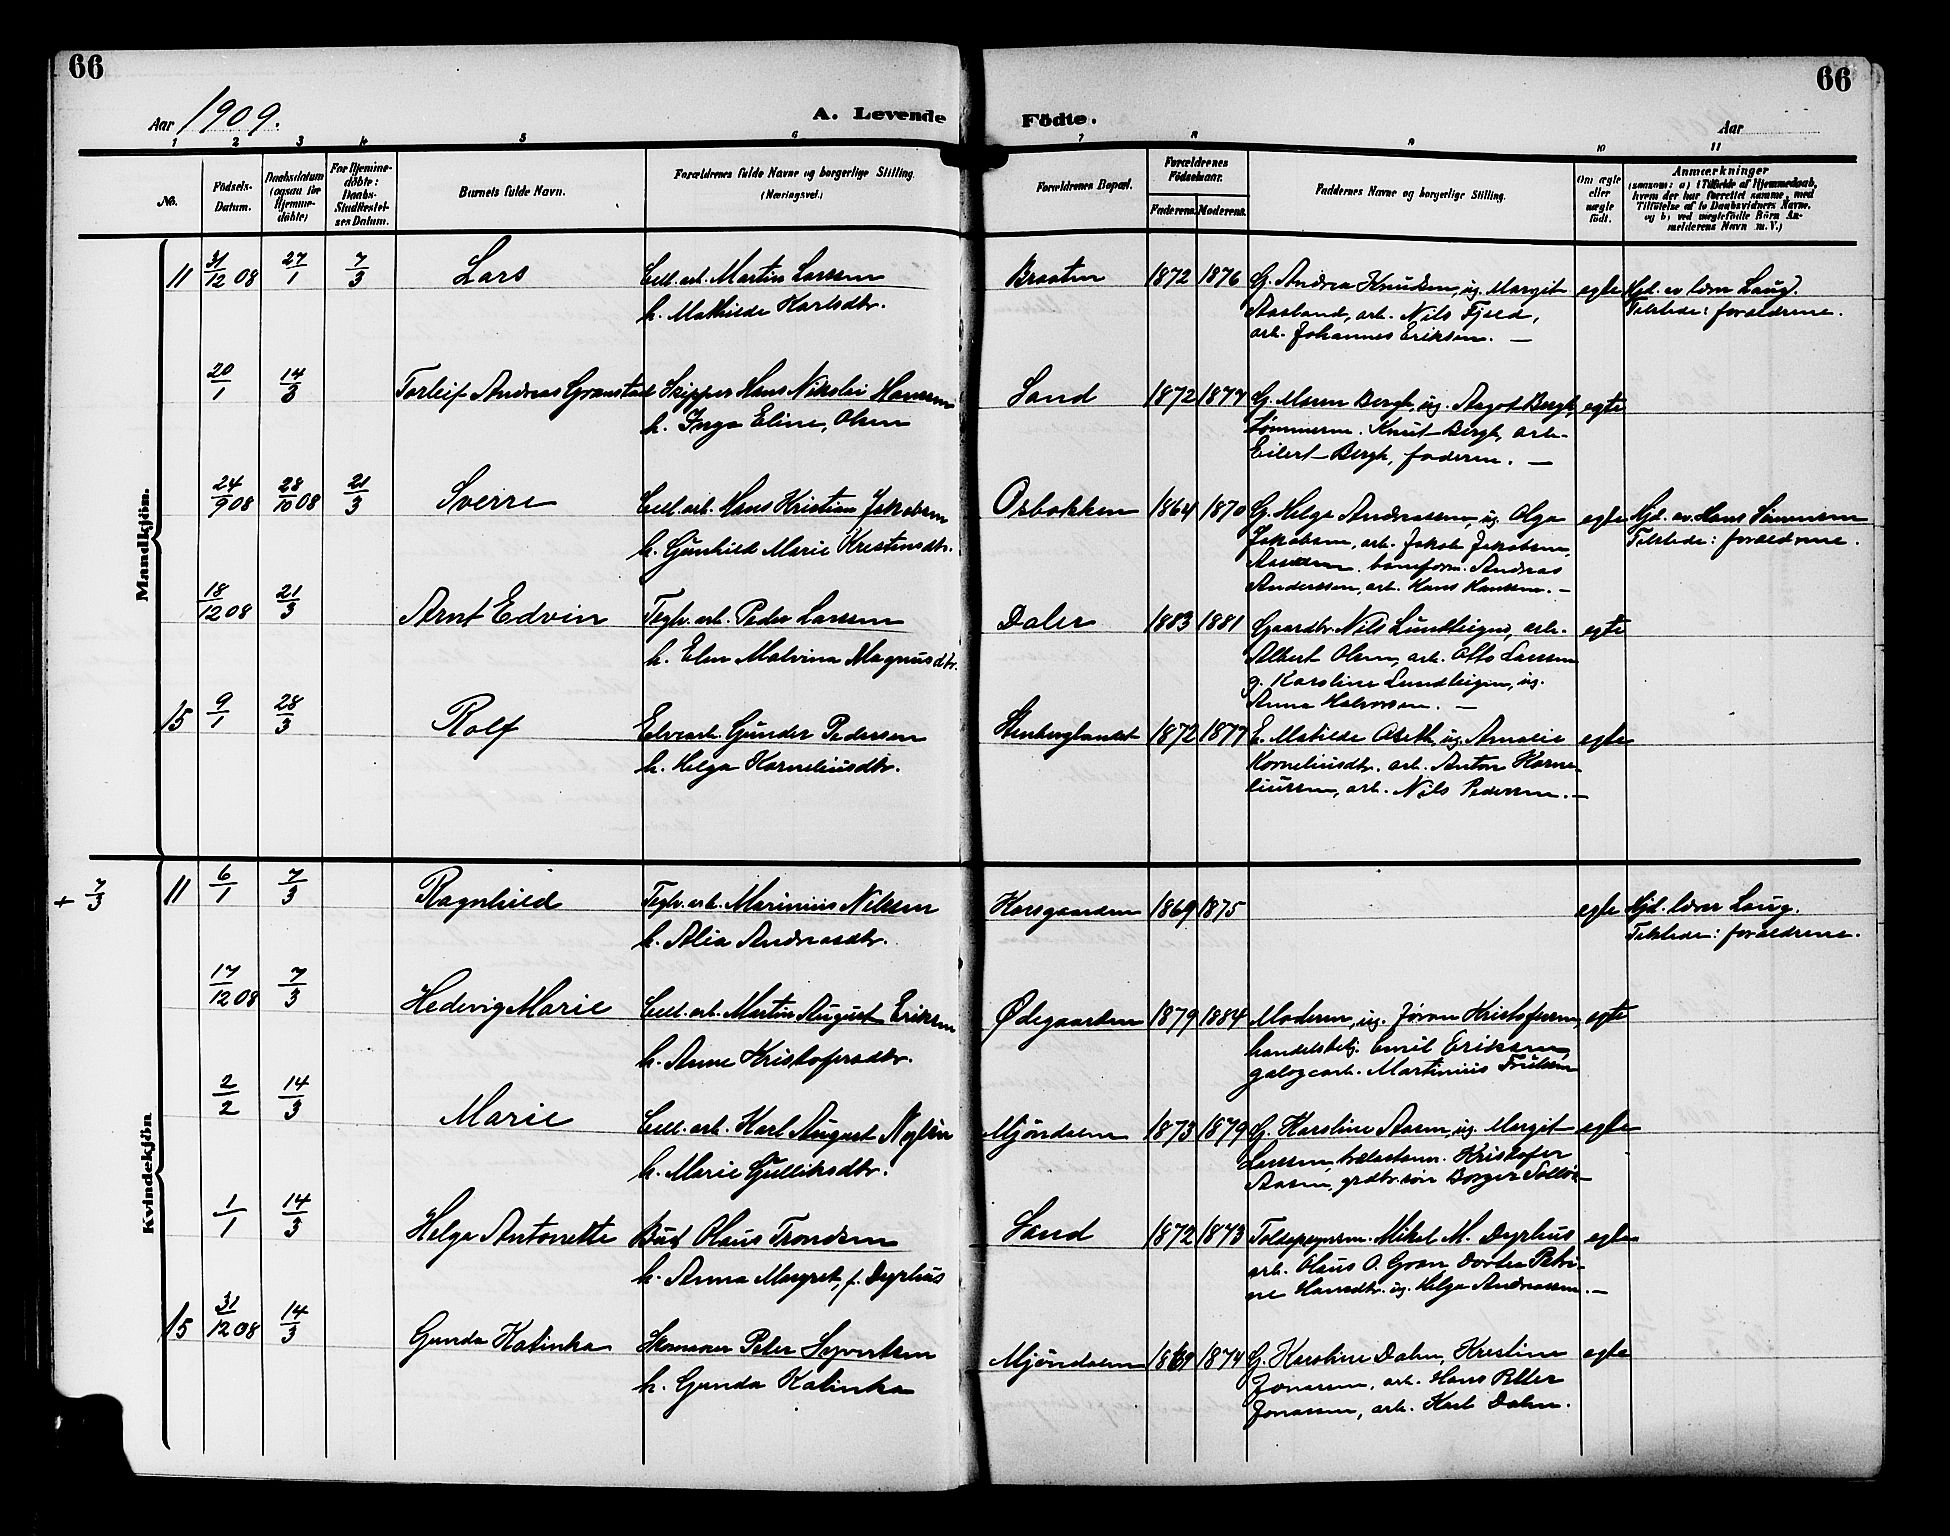 66
66
Aar 1909.
A. Levende Födte.
Aar
1 2 3 4 5 6 7 8 9 10 11
No.
Födsels-Datum.
Daabsdatum (ogsaa for Hjemme-döbte)
For Hjemme-döbte: Daabs-Stadfæstel-ses Datum.
Barnets fulde Navn.
Forældrenes fulde Navne og borgerlige Stilling. (Næringsvei.)
Forældrenes Bopæl.
Forældrenes Födselsaar.
Faderens. Moderens.
Faddernes Navne og borgerlige Stilling.
Om ægte eller uægte födt.
Anmærkninger
(saasom: a) i Tilfælde af Hjemmedaab, hvem der har forrettet samme, med Tilföielse af to Daabsvidners Navne, og b) ved uægtefödte Börn An-melderens Navn m. V.)
Mandkjön.
11 31/12 08 27/1 7/3 Lars Cell. arb. Martin Larsen
h. Mathilde Karlsdtr.
Braaten 1872 1876 G. Andrea Knudsen, ug. Margit
Aasland, arb. Nils Fjeld,
arb. Johannes Eriksen. —
egte Hjd. av lærer Laug.
Tilstede: forældrene.
20/1 14/3 Torleif Andreas Granstad Skipper Hans Nikolai Hansen
h. Inga Eline, Olsen
Sand 1872 1877 G. Maren Bergh, ug. Aagot Bergh,
tømmerm. Knut Bergh, arb.
Eilert Bergh, faderen. —
egte
24/9 08 28/10 08 21/3 Sverre Cell. arb. Hans Kristian Jakobsen
h. Gunhild Marie Kristensdtr.
Osbakken 1864 1870 G. Helga Andreassen, ug. Olga
Jakobsen, arb. Jakob Jakobsen,
Andreas
Anderssen, arb. Hans Hansen. —
egte Hjd. av Hans Simensen
Tilstede: forældrene.
18/12 08 21/3 Arnt Edvin Teglv. arb. Peder Larsen
h. Elen Malvina Magnusdtr.
Daler 1883 1881 Gaardbr. Nils Lundteigen, arb.
Albert Olsen, arb. Otto Larssen
g. Karoline Lundteigen, ug.
Anna Halvorsen. —
egte
15 9/1 28/3 Rolf Elvearb. Gunder Pedersen
h. Helga Korneliusdtr.
Stenberglandet 1872 1877 E. Matilde Aseth, ug. Amalie
Korneliusdtr. arb. Anton Korne-
liussen, arb. Nils Pedersen. —
egte
Kvindekjön
+ 7/3 11 6/1 7/3 Ragnhild Teglv. arb. Marinius Nilsen
h. Alia Andreasdtr.
Korsgaarden 1869 1875 egte Hjd. lærer Laug.
Tilstede: forældrene.
17/12 08 7/3 Hedevig Marie Cell. arb. Martin August Eriksen
h. Anne Kristofersdtr.
Ødegaarden 1879 1884 Moderen, ug. Jøran Kristofersen,
handelsbetj. Emil Eriksen,
galogearb. Martinius
egte
2/2 14/3 Marie Cell. arb. Karl August Nylen
h. Marie Gulliksdtr.
Mjøndalen 1873 1879 G. Karoline Aasen, ug. Margit
Larssen, trælastarb. Kristofer
Aasen, grdbr. søn Borger
egte
1/1 14/3 Helga Antonette Bud Olaus Trondsen
h. Anna Margret, f. Dyrhus
Sand 1872 1873 Mikal M. Dyrhus
arb. Olaus O. Gran, Dortea Petri-
ne Hansdtr. ug. Helga Andreassen. —
egte
15 31/12 08 14/3 Gunda Katinka Skomaker Peter Syvertsen
h. Gunda Katinka
Mjøndalen 1869 1874 G. Karoline Dalen, Kristine
Jonassen, arb. Hans Petter
Jonassen, arb. Karl Dalen.
egte